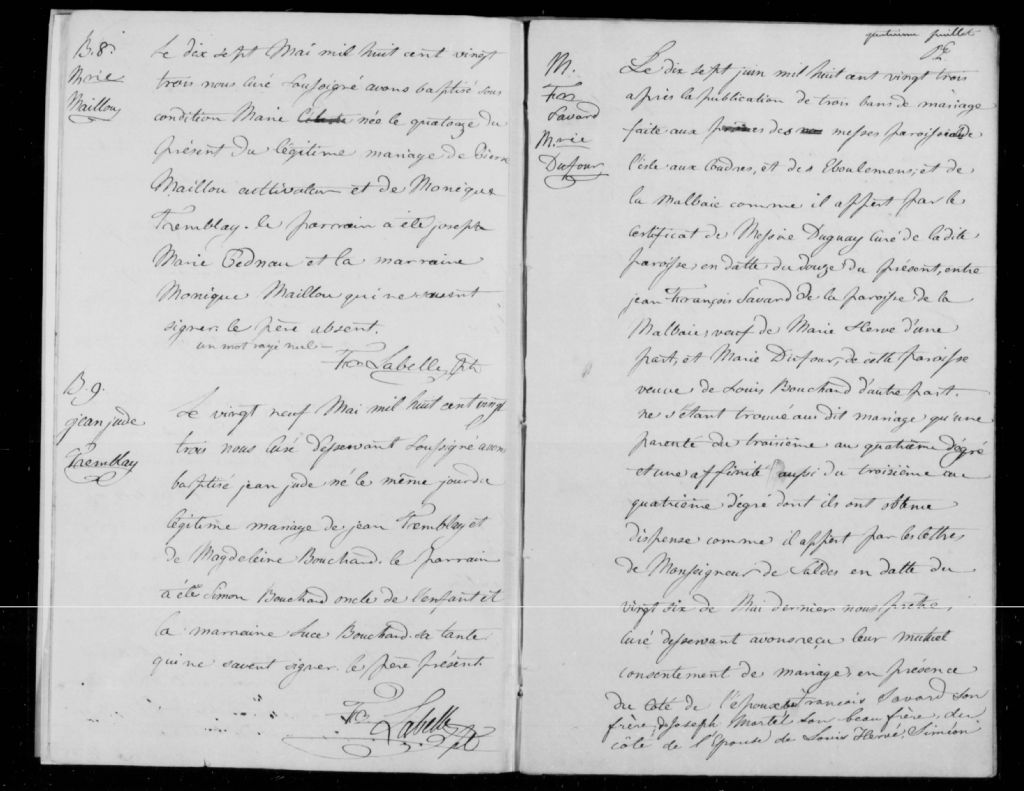 B. 8.
M.rie
Maillou
Le dix sept Mai mil huit cent vingt
trois nous curé soussigné avons baptisé sous
condition Marie née le quatorze du
présent du légitime mariage de Pierre
Maillou cultivateur et de Monique
Tremblay. le parrain a été joseph
Marie Pednau et la marraine
Monique Maillou qui ne savent
signer. le père absent.
un mot rayé nul
Frs Labelle Ptr
B. 9.
jean jude
Tremblay
Le vingt neuf Mai mil huit cent vingt
trois nous curé desservant soussigné avons
baptisé jean jude né le même jour du
légitime mariage de jean Tremblay et
de Magdeleine Bouchard. le parrain
a été Simon Bouchard oncle de l'enfant et
la marraine Luce Bouchard sa tante
qui ne savent signer. le père présent.
Frs Labelle Ptr
quatrieme feuillet
M.
Frs
Savard
M.rie
Dufour
Le dix sept juin mil huit cent vingt trois
après la publication de trois bans de mariage
faite aux des messes paroissiales de
l'isle aux Coudres, et des Eboulemens, et de
la Malbaie comme il appert par le
certificat de Messire Duguay curé de la dite
paroisse en datte du douze du présent, entre
jean François Savard de la paroisse de la
Malbaie, veuf de Marie Hervé d'une
part, et Marie Dufour, de cette paroisse
veuve de Louis Bouchard d'autre part.
ne s'étant trouvé au dit mariage qu'une
parenté du troisième au quatrième dégré
et une affinité aussi du troisième au
quatrième dégré dont ils ont obtenu
dispense comme il appert par les lettres
de Monseigneur de Saldes en datte du
vingt six de Mai dernier nous prêtre,
curé desservant avons reçu leur mutuel
consentement de mariage, en présence
du coté de l'époux de François Savard son
frère, de Joseph Martel son beau frère, du
côté de l'Epouse de Louis Hervé, Siméon